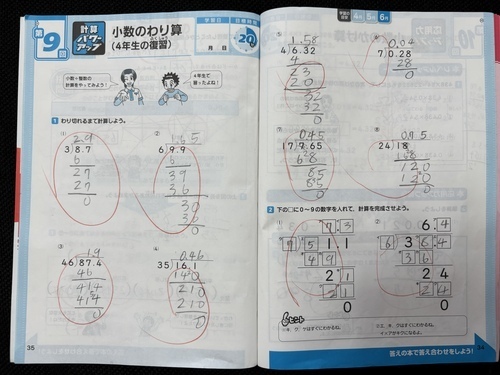 第9回
計算パワーアップ
小数のわり算
(4年生の復習)
学習日
月 日
目標時間
20
小数÷整数の
計算をやってみよう!
4年生で
習ったよね!
1 わり切れるまで計算しよう。
①
2.9
3)8.7
6
27
27
0
②
1.65
6)9.9
6
39
36
30
30
0
③
1.9
46)87.4
46
414
414
0
④
0.46
35)16.1
140
210
210
0
35
4月 5月 6月
⑤
1.58
4)6.32
4
23
20
32
32
0
⑥
0.04
7)0.28
28
0
⑦
0.45
17)7.65
68
85
85
0
⑧
0.75
24)18
168
120
120
0
2 下の□に0~9の数字を入れて、計算を完成させよう。
①
7.3
7)511
49
21
21
0
②
6.4
6)36.4
36
24
24
0
ヒント
答えの本で答え合わせをしよう!